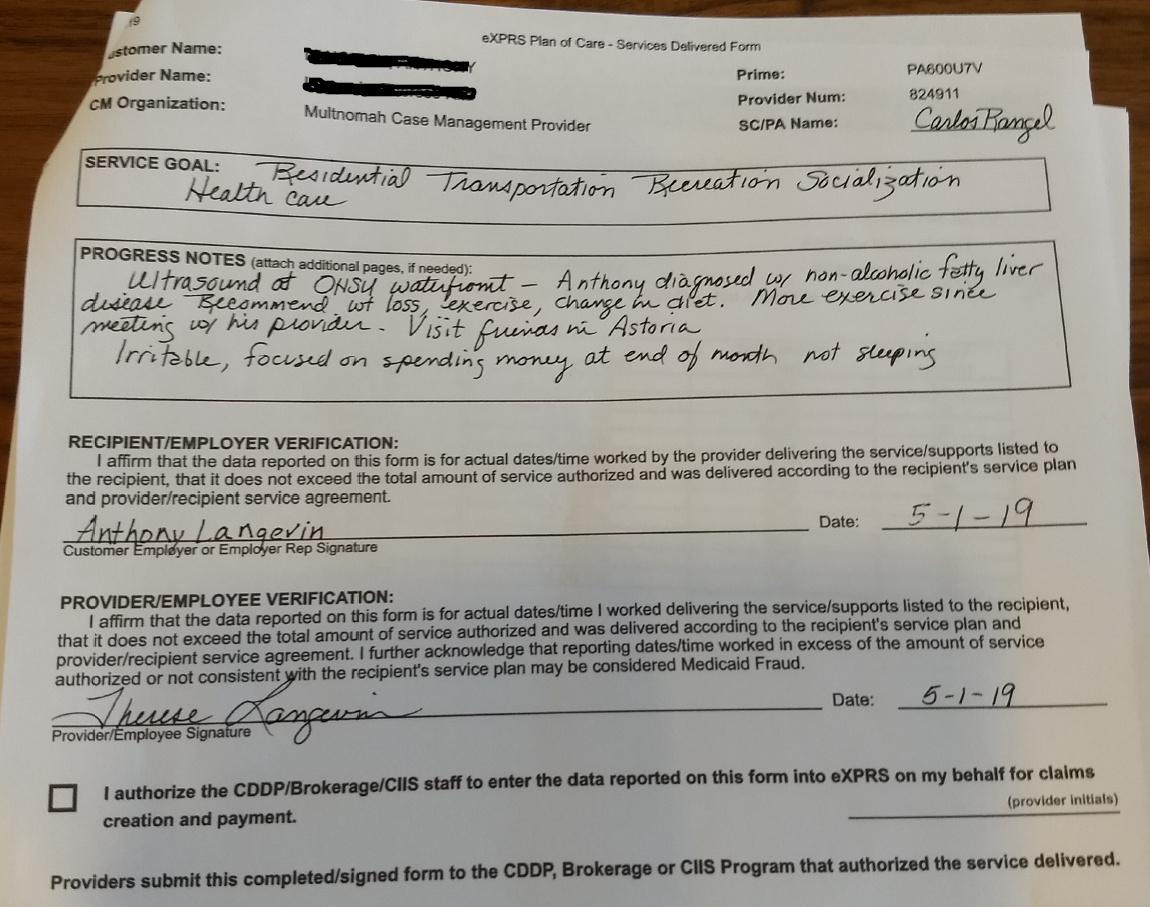 19
eXPRS Plan of Care - Services Delivered Form
stomer Name:
Provider Name:
CM Organization: Multnomah Case Management Provider
Prime: PA600U7V
Provider Num: 824911
SC/PA Name: Carlos Rangel
SERVICE GOAL: Residential Transportation Recreation Socialization
Health care
PROGRESS NOTES (attach additional pages, if needed):
Ultrasound at OHSU waterfront - Anthony diagnosed w/ non-alcoholic fatty liver
disease Recommend wt loss, exercise, change in diet. More exercise since
meeting w/ his provider. Visit in Astoria
Irritable, focused on spending money at end of month not sleeping
RECIPIENT/EMPLOYER VERIFICATION:
I affirm that the data reported on this form is for actual dates/time worked by the provider delivering the service/supports listed to
the recipient, that it does not exceed the total amount of service authorized and was delivered according to the recipient's service plan
and provider/recipient service agreement.
Anthony Langevin Date: 5-1-19
Customer Employer or Employer Rep Signature
PROVIDER/EMPLOYEE VERIFICATION:
I affirm that the data reported on this form is for actual dates/time I worked delivering the service/supports listed to the recipient,
that it does not exceed the total amount of service authorized and was delivered according to the recipient's service plan and
provider/recipient service agreement. I further acknowledge that reporting dates/time worked in excess of the amount of service
authorized or not consistent with the recipient's service plan may be considered Medicaid Fraud.
Therese Langevin Date: 5-1-19
Provider/Employee Signature
I authorize the CDDP/Brokerage/CIIS staff to enter the data reported on this form into eXPRS on my behalf for claims
creation and payment.
(provider initials)
Providers submit this completed/signed form to the CDDP, Brokerage or CIIS Program that authorized the service delivered.